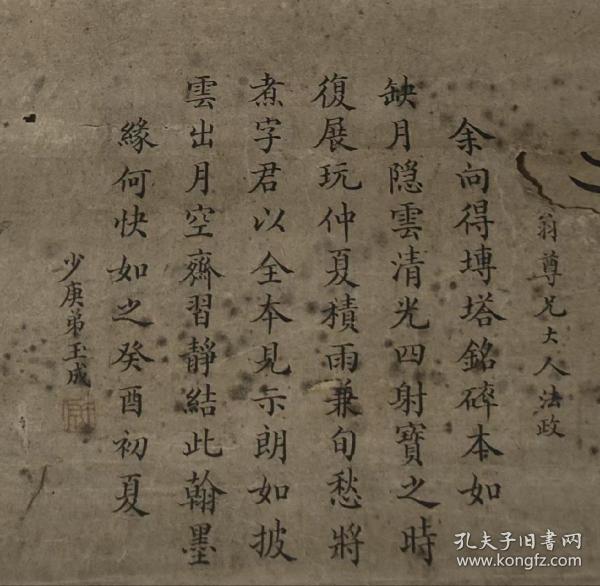 翁尊兄大人法政
余向得塼塔銘碎本如
缺月隐雲清光四射寶之時
復展玩仲夏積雨兼旬愁將
煮字君以全本見示朗如披
雲出月空齋習靜結此翰墨
緣何快如之癸酉初夏
少庚弟玉成
孔夫子旧书网
kongfz.com